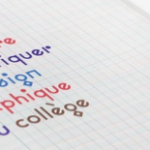 re
iquer
sign
phique
u collège